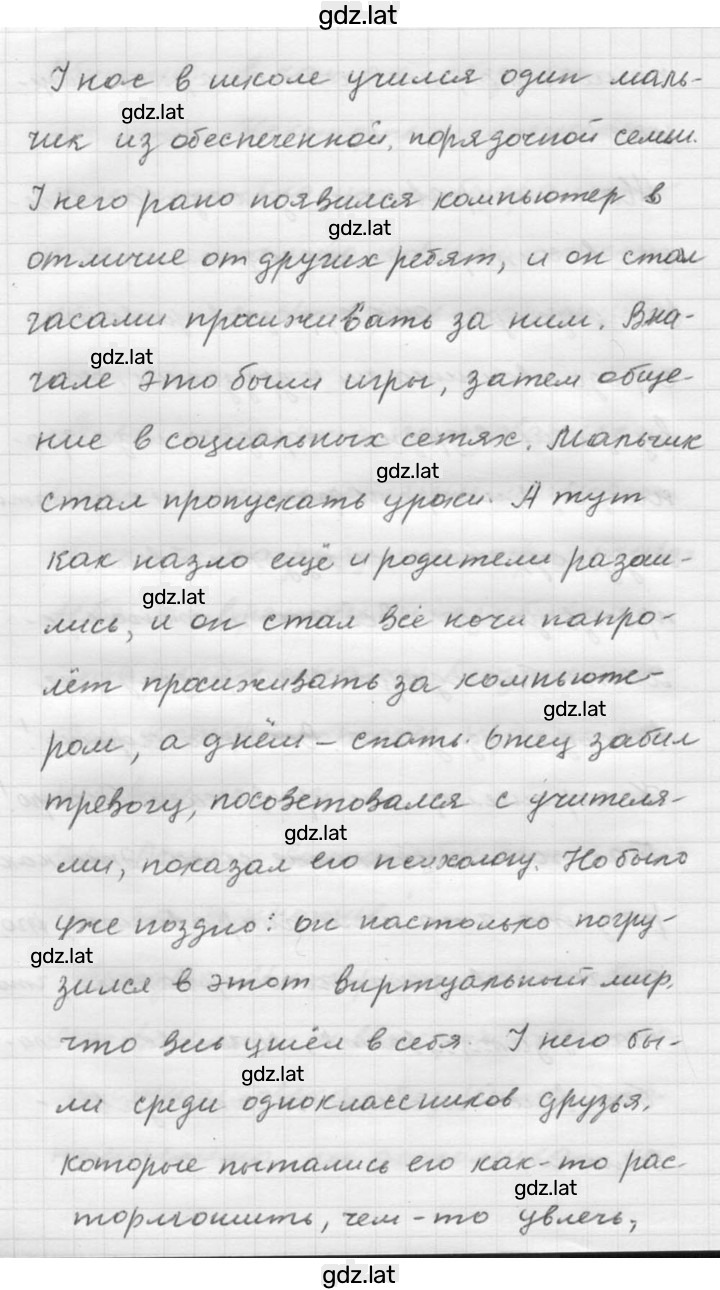 gdz.lat
У нас в школе учился один маль-
gdz.lat
чик из обеспеченной, порядочной семьи.
У него рано появился компьютер в
gdz.lat
отличие от других ребят, и он стал
часами просиживать за ним. Вна-
gdz.lat
чале это были игры, затем обще-
ние в социальных сетях. Мальчик
gdz.lat
стал пропускать уроки. А тут
как назло ещё и родители разош-
gdz.lat
лись, и он стал все ночи напро-
лёт просиживать за компьюте-
gdz.lat
ром, а днём – спать. Отец забил
тревогу, посоветовался с учителя-
gdz.lat
ми, показал его психологу. Но было
уже поздно: он настолько погру-
gdz.lat
зился в этот виртуальный мир,
что весь ушёл в себя. У него бы-
gdz.lat
ли среди одноклассников друзья,
которые пытались его как-то рас-
gdz.lat
тормошить, чем-то увлечь,
gdz.lat